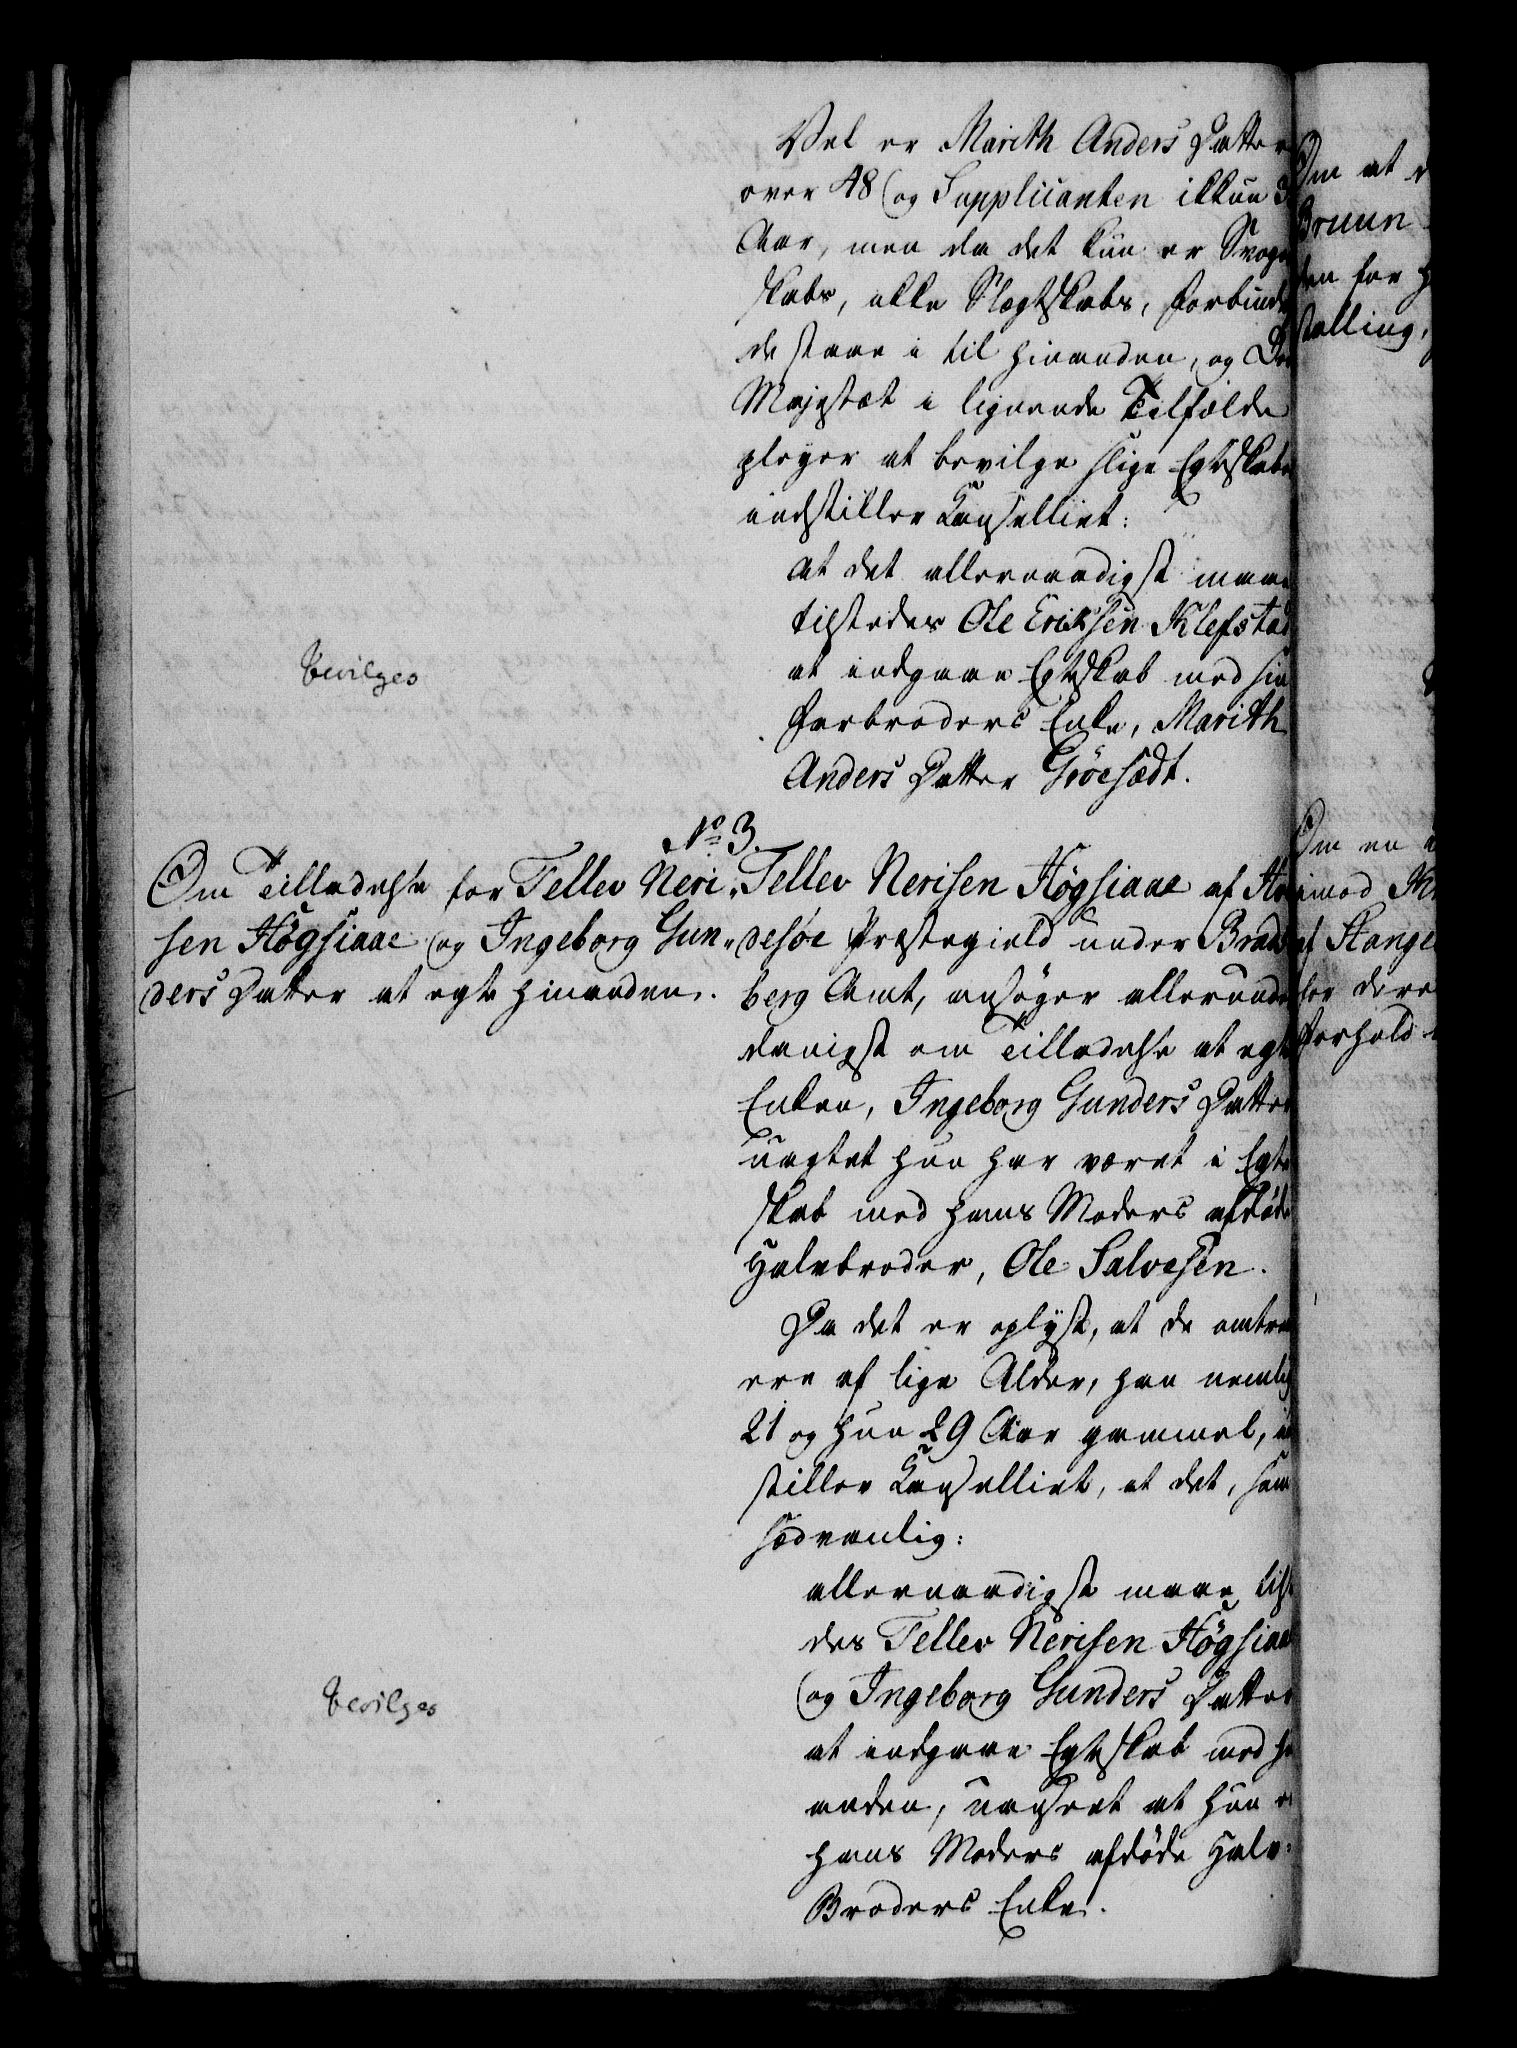 Vel er Marith Anders Datter
over 48 og Supplicanten ikkun
Aar, men da det kun er Svoger
skabs, ikke Slægtskabs, Forbindelse
de staae i til hinanden, og Deres
Majestæt i lignende Tilfælde
pleyer at bevilge slige Egteskaber
indstiller Cancelliet:
at det allernaadigst maae
tilstedes Ole Eriksen Klefstad
at indgaae Egteskab med sin
Farbroders Enke, Marith
Anders Datter Gröesædt.
bevilges
No 3.
Om Tilladelse for Tellev Neri„
sen Högsiaae og Ingeborg Gun„
ders Datter at egte hinanden.
Tellev Nerisen Högsiaae af Hvi
desöe Præstegield under Brads
berg Amt, ansöger allerunder
danigst om Tilladelse at egte
Enken, Ingeborg Gunders Datter
uagtet hun har været i Egte
skab med hans Moders afdöde
Halvbroder, Ole Salvesen.
Da det er oplyst, at de omtrent
ere af lige Alder, han nemlig
21 og hun 29 Aar gammel, ind
stiller Cancelliet, at det, som
sædvanlig:
allernaadigst maae tilste
des Tellev Nerisen Högsiaae
og Ingeborg Gunders Datter
at indgaae Egteskab med hin
anden, uanseet at hun er
hans Moders afdöde Halv-
Broders Enke.
bevilges
Om at
Bruun
den for
stilling,
Om en
imod
af Stange
for dere
Forhold